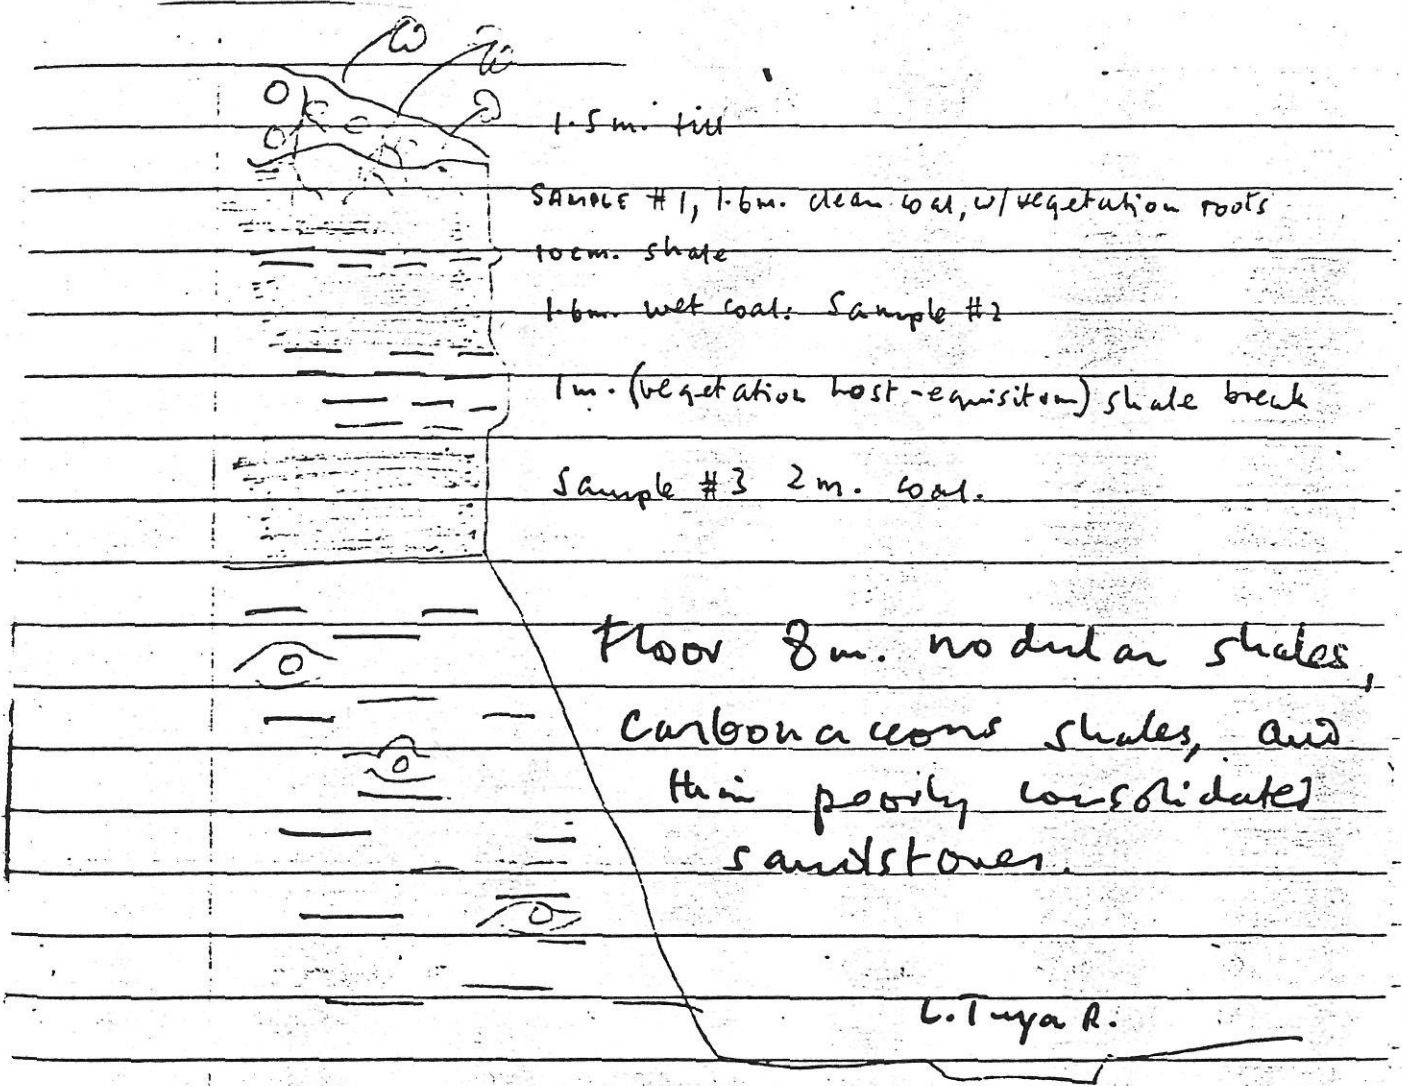 1.5 m. till
SAMPLE #1, 1.6m. clean coal, w/ vegetation roots
10cm. shale
1.6m. wet coal: Sample #2
1m. (vegetation host-equisitum) shale break
Sample #3 2m. coal.
Floor 8m. nodular shales,
carbonaceous shales, and
thin poorly consolidated
sandstones.
L. Tuya R.